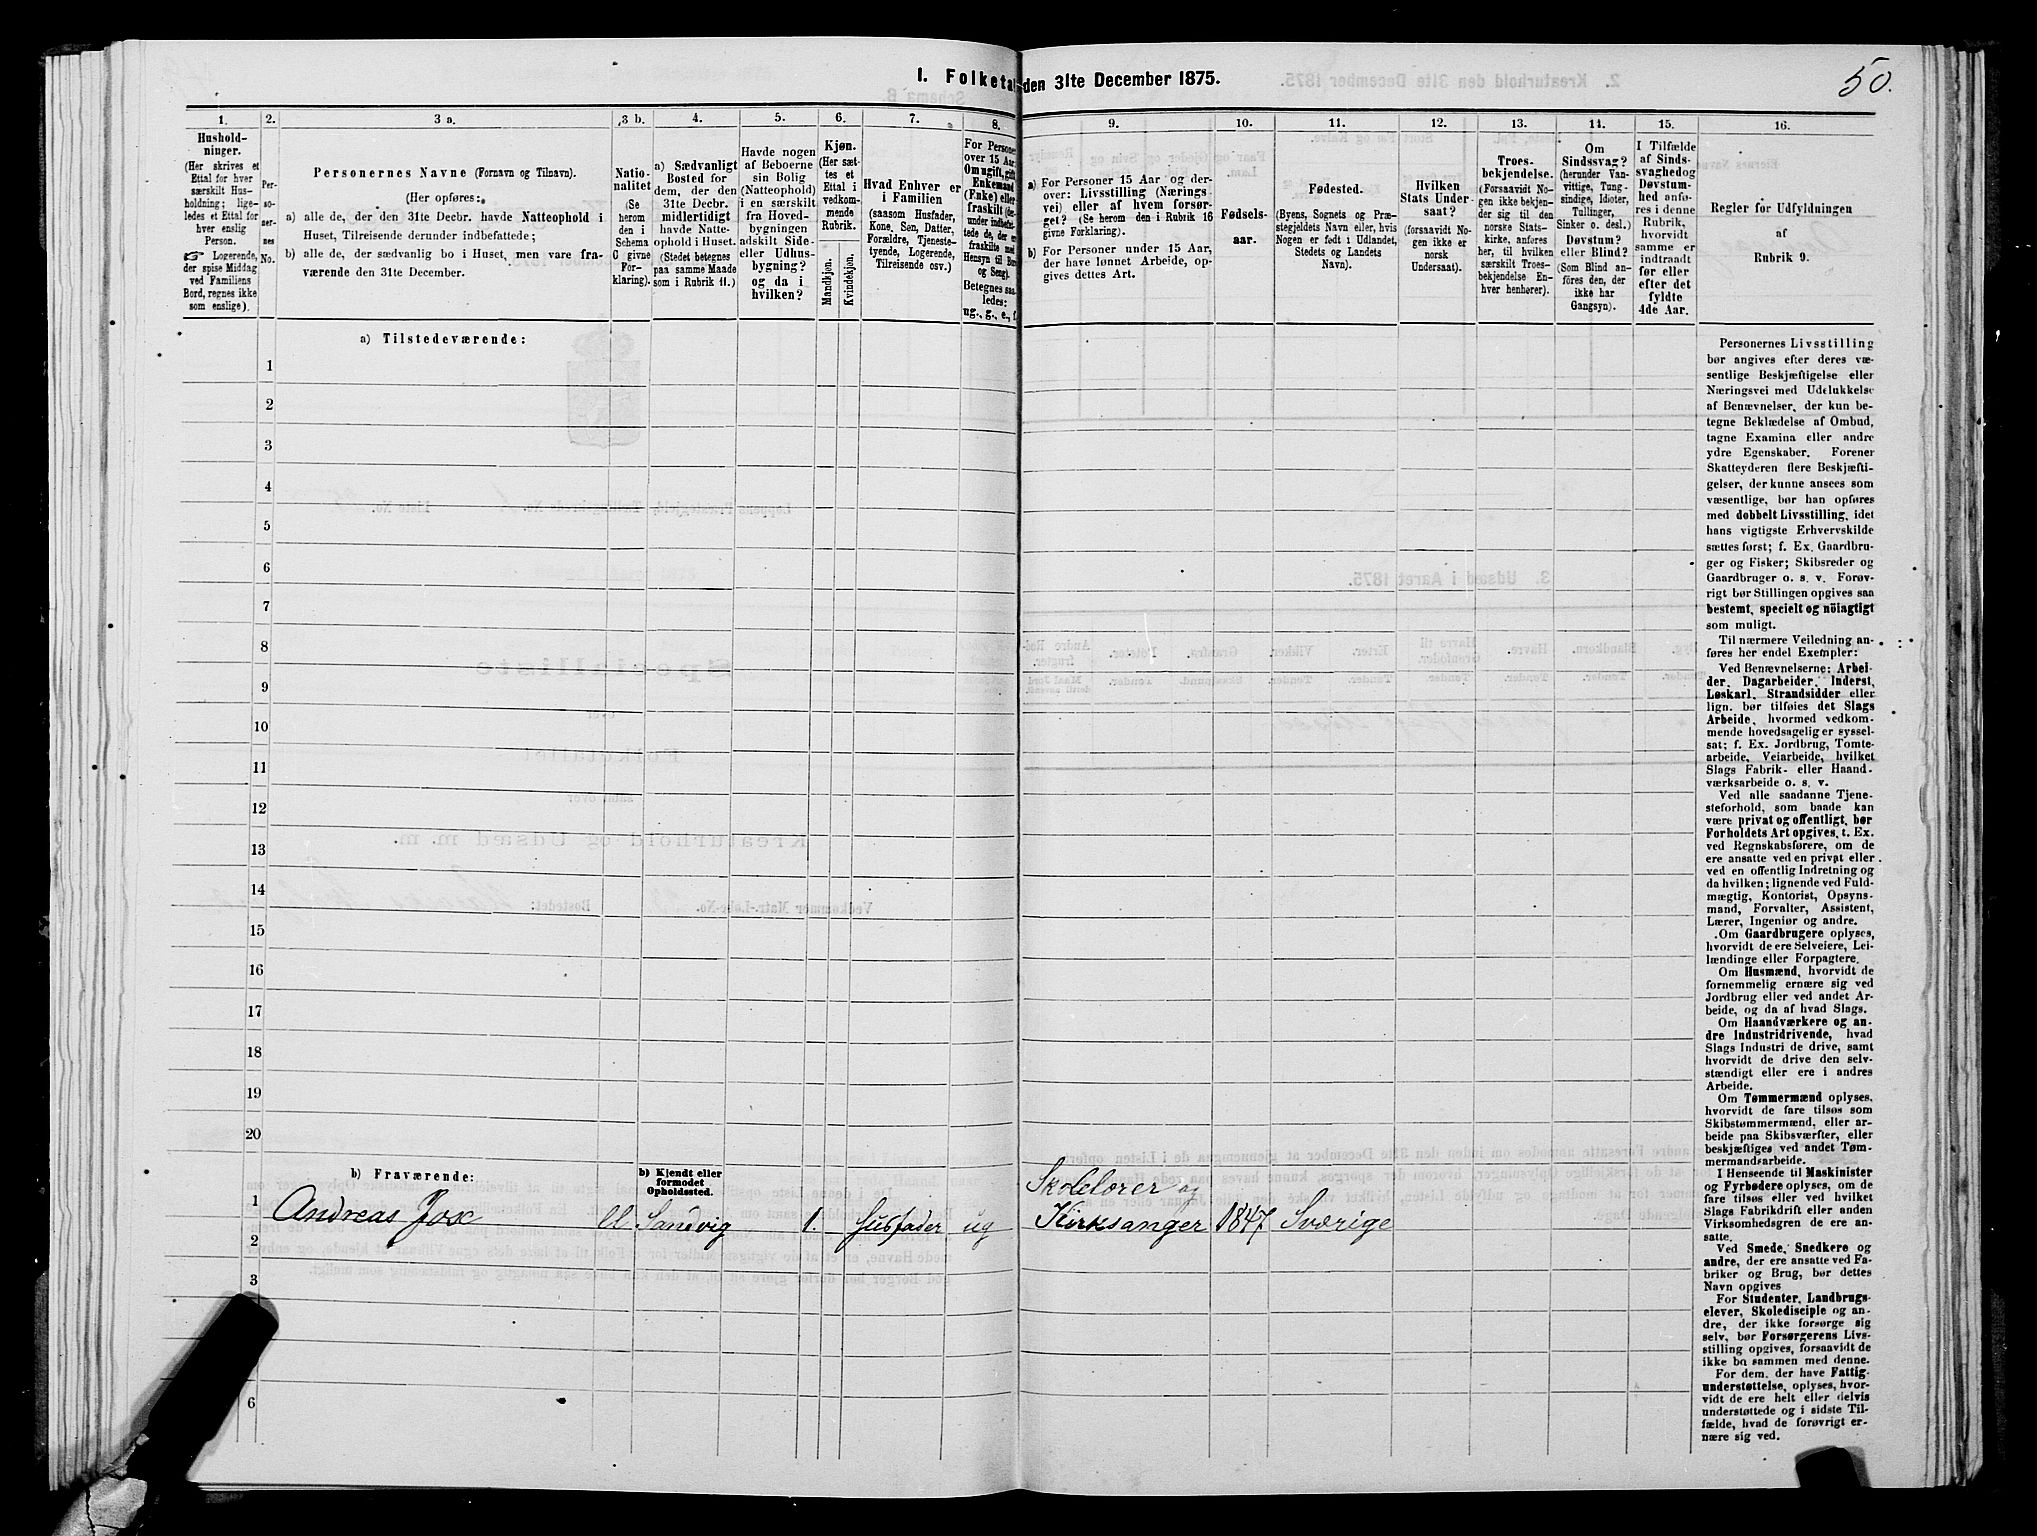 50.
1. Folketal den 31te December 1875.
1.
Hushold-
ninger.
(Her skrives et
Ettal for hver
særskilt Hus-
holdning; lige-
ledes et Ettal for
hver enslig
Person.
☞ Logerende,
der spise Middag
ved Familiens
Bord, regnes ikke
som enslige).
2.
Per-
so-
ner-
nes
No.
3 a.
Personernes Navne (Fornavn og Tilnavn).
(Her opføres:
a) alle de, der den 31te Decbr. havde Natteophold i
Huset, Tilreisende derunder indbefattede;
b) alle de, der sædvanlig bo i Huset, men vare fra-
værende den 31te December.
3 b.
Natio-
nalitet
(Se
herom
den i
Schema
C givne
For-
klaring).
4.
a) Sædvanligt
Bosted for
dem, der den
31te Decbr.
midlertidigt
havde Natte-
ophold i Huset.
(Stedet betegnes
paa samme Maade
som i Rubrik 11.)
5.
Havde nogen
af Beboerne
sin Bolig
(Natteophold)
i en særskilt
fra Hoved-
bygningen
adskilt Side-
eller Udhus-
bygning?
og da i
hvilken?
6.
Kjøn.
(Her sæt-
tes et
Ettal i
vedkom-
mende
Rubrik.
Mandkjøn.
Kvindekjøn.
7.
Hvad Enhver er
i Familien
(saasom Husfader,
Kone, Søn, Datter,
Forældre, Tjeneste-
tyende, Logerende,
Tilreisende osv.)
8.
For Personer
over 15 Aar.
Om ugift, gift,
Enkemand
(Enke) eller
fraskilt
Betegnes saa-
ledes:
ug., g., e., f.
9.
a) For Personer 15 Aar og der-
over: Livsstilling (Nærings-
vei) eller af hvem forsør-
get? (Se herom den i Rubrik 16
givne Forklaring).
b) For Personer under 15 Aar,
der have lønnet Arbeide, op-
gives dettes Art.
10.
Fødsels-
aar.
11.
Fødested.
(Byens, Sognets og Præ-
stegjeldets Navn eller, hvis
Nogen er født i Udlandet,
Stedets og Landets
Navn).
12.
Hvilken
Stats Under-
saat?
(forsaavidt No-
gen ikke er
norsk
Undersaat).
13.
Troes-
bekjendelse.
(Forsaavidt No-
gen ikke bekjen-
der sig til den
norske Stats-
kirke, anføres
her, til hvilken
særskilt Troes-
bekjendelse En-
hver henhører).
14.
Om
Sindssvag?
(herunder Van-
vittige, Tung-
sindige, Idioter,
Tullinger,
Sinker o. desl.)
Døvstum?
eller Blind?
(Som Blind an-
føres den, der
ikke har
Gangsyn).
15.
I Tilfælde
af Sinds-
svaghed og
Døvstum-
hed anfø-
res i denne
Rubrik,
hvorvidt
samme er
indtraadt
før eller
efter det
fyldte
4de Aar.
16.
Regler for Udfyldningen
af
Rubrik 9.
a) Tilstedeværende:
1
2
3
4
5
6
7
8
9
10
11
12
13
14
15
16
17
18
19
20
b) Fraværende:
b) Kjendt eller
formodet
Opholdssted.
1
Andreas Sandvig 1. Husfader ug Skolelærer og
Kirksanger 1847 Sværige
2
3
6
Personernes Livsstilling
bør angives efter deres væ-
sentlige Beskjæftigelse eller
Næringsvei med Udelukkelse
af Benævnelser, der kun be-
tegne Beklædelse af Ombud,
tagne Examina eller andre
ydre Egenskaber. Forener
Skatteyderen flere Beskjæfti-
gelser, der kunne ansees som
væsentlige, bør han opføres
med dobbelt Livsstilling, idet
hans vigtigste Erhvervskilde
sættes først; f. Ex. Gaardbru-
ger og Fisker; Skibsreder og
Gaardbruger o. s. v. Forøv-
rigt bør Stillingen opgives saa
bestemt, specielt og nöiagtigt
som muligt.
Til nærmere Veiledning an-
føres her endel Exempler:
Ved Benævnelserne: Arbei-
der, Dagarbeider, Inderst,
Løskarl, Strandsidder eller
lign. bør tilføies det Slags
Arbeide, hvormed vedkom-
mende hovedsagelig er syssel-
sat; f. Ex. Jordbrug, Tomte-
arbeide, Veiarbeide, hvilket
Slags Fabrik- eller Haand-
værksarbeide o. s. v.
Ved alle saadanne Tjene-
steforhold, som baade kan
være privat og offentligt, bør
Forholdets Art opgives, t. Ex.
ved Regnskabsførere, om de
ere ansatte ved en privat eller
ved en offentlig Indretning og
da hvilken; lignende ved Fuld-
mægtig, Kontorist, Opsyns-
mand, Forvalter, Assistent,
Lærer, Ingeniør og andre.
Om Gaardbrugere oplyses,
hvorvidt de ere Selveiere, Lei-
lændinge eller Forpagtere.
Om Husmænd, hvorvidt de
fornemmelig ernære sig ved
Jordbrug eller ved andet Ar-
beide, og da af hvad Slags.
Om Haandværkere og an-
dre Industridrivende, hvad
Slags Industri de drive, samt
hvorvidt de drive den selv-
stændigt eller ere i andres
Arbeide.
Om Tømmermænd oplyses,
hvorvidt de fare tilsøs som
Skibstømmermænd, eller ar-
beide paa Skibsværfter, eller
beskjæftiges ved andet Tøm-
mermandsarbeide.
I Henseende til Maskinister
og Fyrbødere oplyses, om de
fare tilsøs eller ved hvilket
Slags Fabrikdrift eller anden
Virksomhedsgren de ere an-
satte.
Ved Smede, Snedkere og
andre, der ere ansatte ved Fa-
briker og Brug, bør dettes
Navn opgives
For Studenter, Landbrugs-
elever, Skoledisciple og an-
dre, der ikke forsørge sig
selv, bør Forsørgerens Livs-
stilling opgives, forsaavidt de
ikke bo sammen med denne.
For dem, der have Fattig-
understøttelse, oplyses, hvor-
vidt de ere helt eller delvis
understøttede og i sidste Til-
fælde, hvad de forøvrigt er-
nære sig ved.